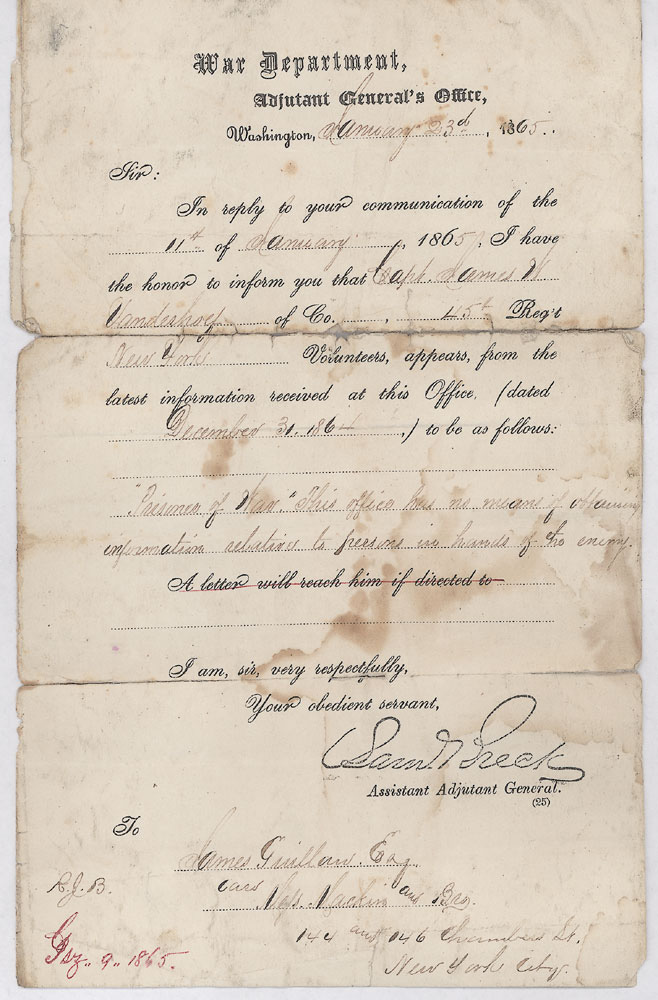 War Department,
Adjutant General's Office,
Washington, January 23d, 1865.
Sir:
In reply to your communication of the
11th of January, 1865, I have
the honor to inform you that Capt. James W
Vanderhoef of Co. , 45th Reg't
New York Volunteers, appears, from the
latest information received at this Office, (dated
December 31. 1864,) to be as follows:
"Prisoner of War." This office has no means of obtaining
information relative to persons in hands of the enemy.
A letter will reach him if directed to
I am, sir, very respectfully,
Your obedient servant,
Saml Breck
Assistant Adjutant General.
(25)
To
James Esq.
care Mackin and Bro.
144 and 146 Chambers St.
New York City.
R.J.B.
9. 1865.